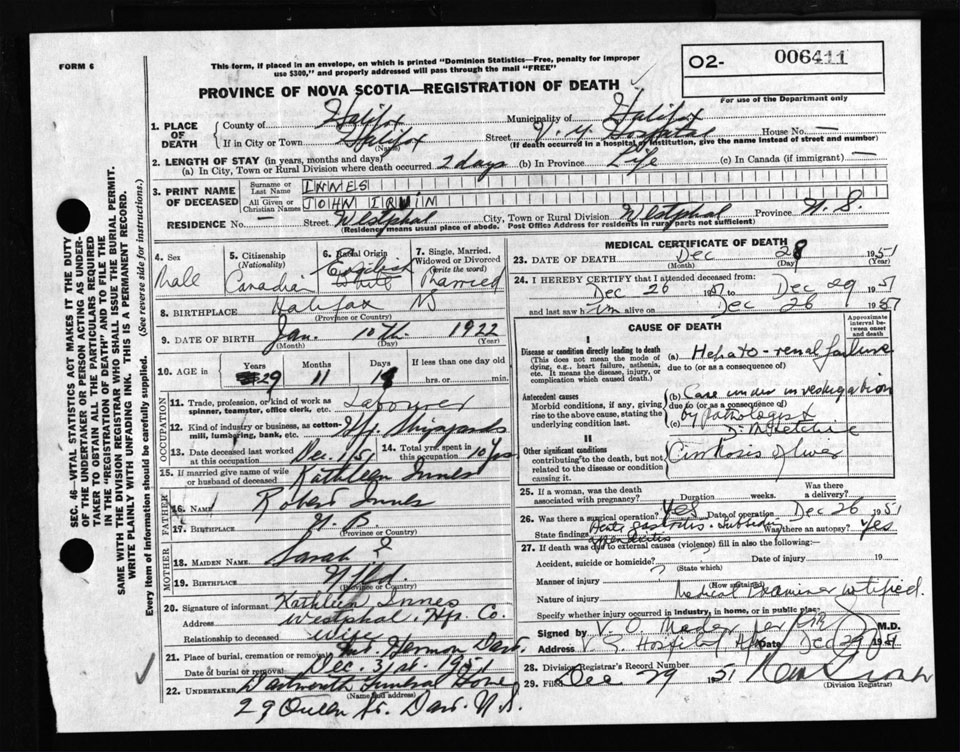 FORM 6
This form, if placed in an envelope, on which is printed "Dominion Statistics—Free, penalty for improper
use $300," and properly addressed will pass through the mail "FREE"
O2- 006411
For use of the Department only
PROVINCE OF NOVA SCOTIA—REGISTRATION OF DEATH
1. PLACE OF DEATH
County of Halifax Municipality of Halifax
If in City or Town Halifax (Name) Street V. G. Hospital House No. —
(If death occurred in a hospital or institution, give the name instead of street and number)
2. LENGTH OF STAY (in years, months and days)
(a) In City, Town or Rural Division where death occurred 2 days (b) In Province Life (c) In Canada (if immigrant) —
3. PRINT NAME OF DECEASED
Surname or Last Name INNES
All Given or Christian Names JOHN IRWIN
RESIDENCE No. — Street Westphal City, Town or Rural Division Westphal Province N. S.
(Residence means usual place of abode. Post Office Address for residents in rural parts not sufficient)
4. Sex Male
5. Citizenship (Nationality) Canadian
6. Racial Origin English White
7. Single, Married, Widowed or Divorced (write the word) Married
8. BIRTHPLACE Halifax NS
(Province or Country)
9. DATE OF BIRTH Jan. 10th 1922
(Month) (Day) (Year)
10. AGE in Years 29 Months 11 Days 18 If less than one day old
hrs. or min.
OCCUPATION
11. Trade, profession, or kind of work as
spinner, teamster, office clerk, etc. Labourer
12. Kind of industry or business, as cotton-
mill, lumbering, bank, etc. Hfx. Shipyards
13. Date deceased last worked at this occupation Dec. 1/51
14. Total yrs. spent in this occupation 10 yrs
15. If married give name of wife
or husband of deceased Kathleen Innes
FATHER
16. NAME Robert Innes
17. BIRTHPLACE N. B.
(Province or Country)
MOTHER
18. MAIDEN NAME Sarah ?
19. BIRTHPLACE Nfld.
(Province or Country)
20. Signature of informant Kathleen Innes
Address Westphal, Hfx. Co.
Relationship to deceased Wife
21. Place of burial, cremation or removal Mt. Hermon Dart.
Date of burial or removal Dec. 31st. 1951
22. Undertaker Dartmouth Funeral Home
(Name and address)
29 Queen St. Dart. N.S.
MEDICAL CERTIFICATE OF DEATH
23. DATE OF DEATH Dec 28 1951
(Month) (Day) (Year)
24. I HEREBY CERTIFY that I attended deceased from:
Dec 26 1951 to Dec 29 1951
and last saw him alive on Dec 26 1951
CAUSE OF DEATH
Approximate interval between onset and death
I
Disease or condition directly leading to death
(This does not mean the mode of dying, e.g., heart failure, asthenia, etc. It means the disease, injury, or complication which caused death.)
(a) Hepato-renal failure
due to (or as a consequence of)
Antecedent causes
Morbid conditions, if any, giving rise to the above cause, stating the underlying condition last.
(b) Case under investigation
due to (or as a consequence of)
by pathologist
(c)
II
Other significant conditions
contributing to the death, but not related to the disease or condition causing it.
Cirrhosis of liver
25. If a woman, was the death associated with pregnancy? Duration weeks. Was there a delivery?
26. Was there a surgical operation? Yes Date of operation Dec 26 1951
State findings Was there an autopsy? Yes
27. If death was due to external causes (violence) fill in also the following:
Accident, suicide or homicide? ? Date of injury 19
(State which)
Manner of injury
(How sustained)
Nature of injury Medical Examiner notified.
Specify whether injury occurred in industry, in home, or in public place
Signed by V. O. Mader per M.D.
V. G. Hospital Hfx Dec 29 1951
28. Division Registrar's Record Number
29. Filed Dec 29 1951
(Division Registrar)
SEC. 46—VITAL STATISTICS ACT MAKES IT THE DUTY
OF THE UNDERTAKER OR PERSON ACTING AS UNDER-
TAKER TO OBTAIN ALL THE PARTICULARS REQUIRED
IN THE "REGISTRATION OF DEATH" AND TO FILE THE
SAME WITH THE DIVISION REGISTRAR WHO SHALL ISSUE THE BURIAL PERMIT.
WRITE PLAINLY WITH UNFADING INK. THIS IS A PERMANENT RECORD.
Every item of information should be carefully supplied. (See reverse side for instructions.)